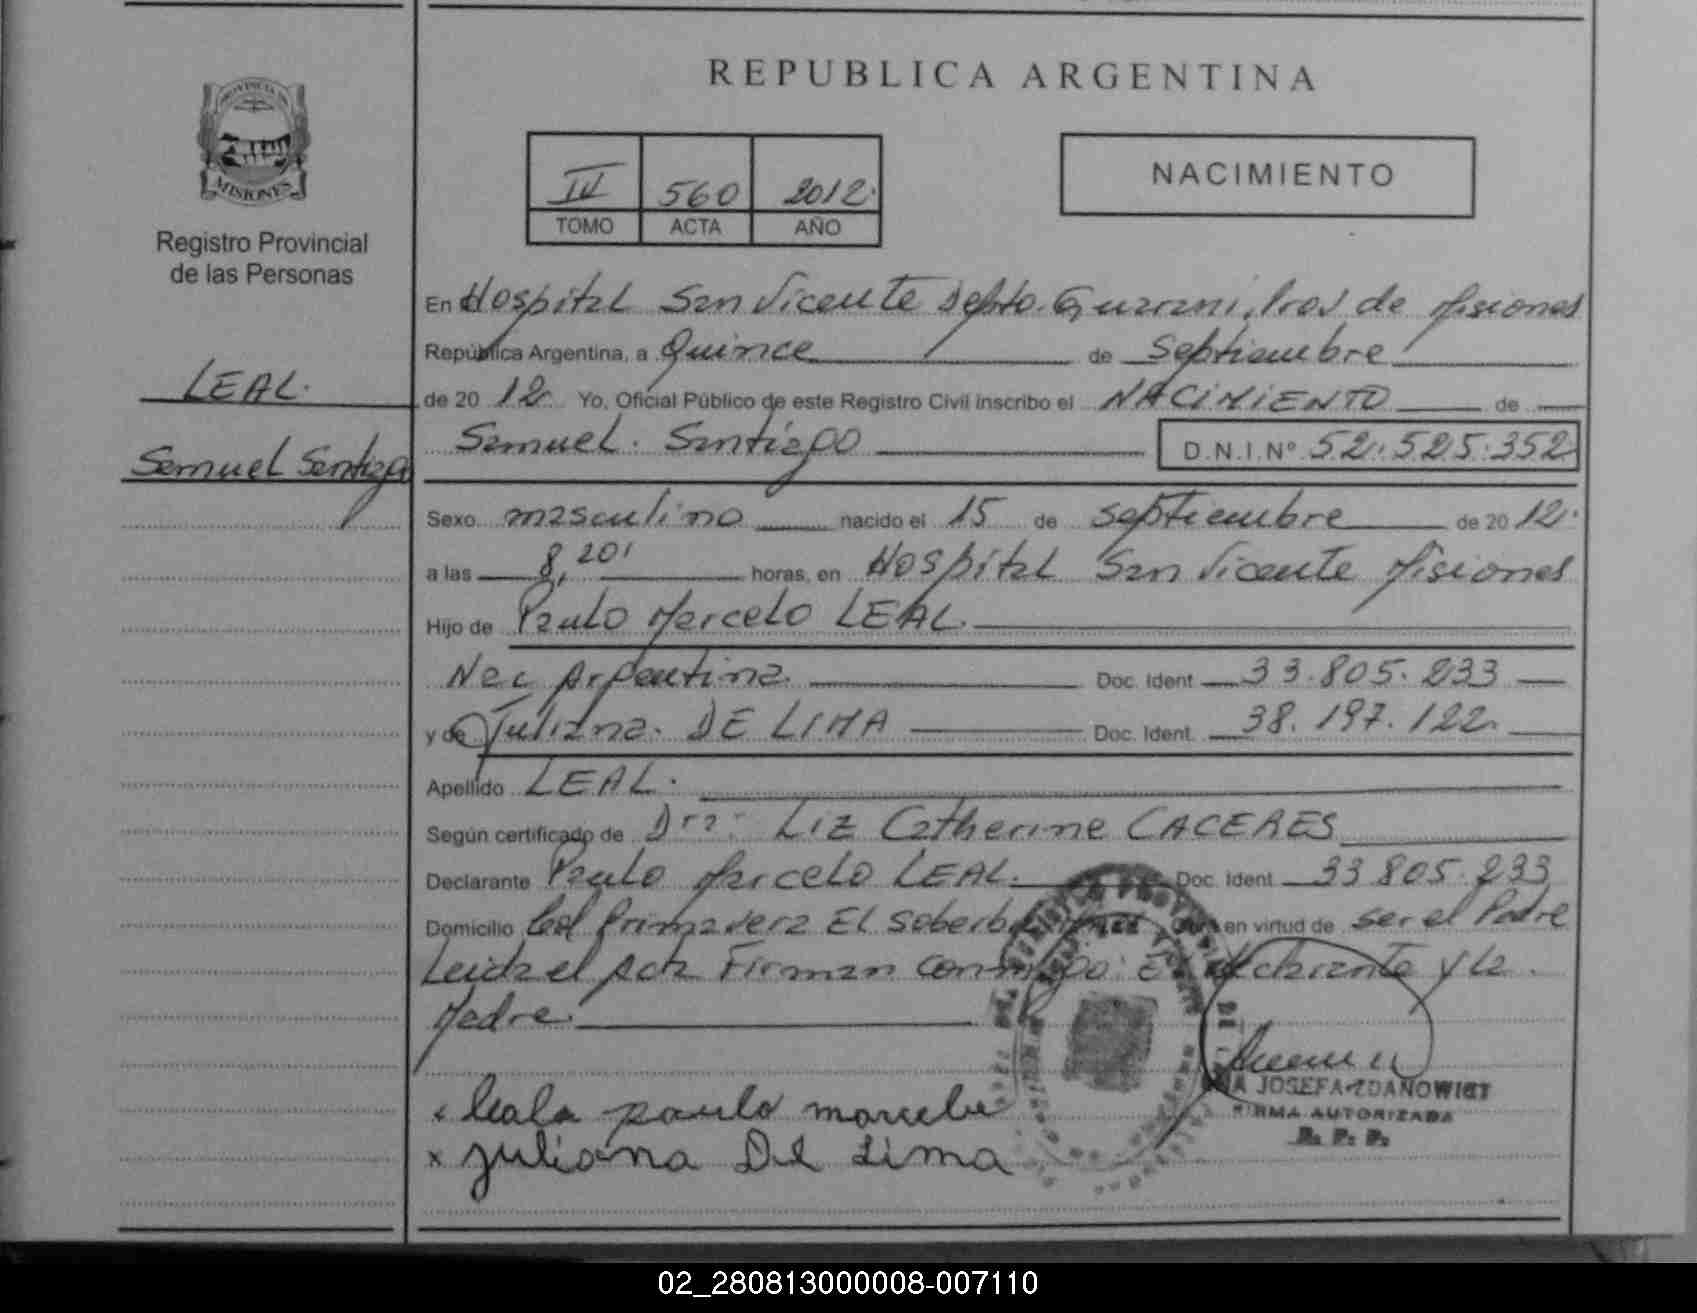 REPUBLICA ARGENTINA
PROVINCIA DE
MISIONES
Registro Provincial
de las Personas
LEAL.
Samuel Santiago
IV 560 2012.
TOMO ACTA AÑO
NACIMIENTO
En Hospital San Vicente Depto. Guarani, Prov de Misiones
República Argentina, a Quince de Septiembre
de 20 12 Yo, Oficial Público de este Registro Civil inscribo el NACIMIENTO de
Samuel. Santiago D.N.I.Nº 52.525.352
Sexo masculino nacido el 15 de septiembre de 20 12.
a las 8,20' horas, en Hospital San Vicente Misiones
Hijo de Paulo Marcelo LEAL.
Nac Argentina. Doc. Ident 33.805.233
y de Juliana. DE LIMA Doc. Ident. 38.197.122.
Apellido LEAL.
Según certificado de Dra: Liz Catherine CACERES
Declarante Paulo Marcelo LEAL. Doc. Ident 33 805.233
Domicilio Col Primavera El Soberb en virtud de ser el Padre
Leida el Acta Firman Conmigo: El declarante y la
Madre.
x leala paulo marcelo
x juliana De Lima
JOSEFA ZDANOWICT
FIRMA AUTORIZADA
R. P. P.
02_280813000008-007110